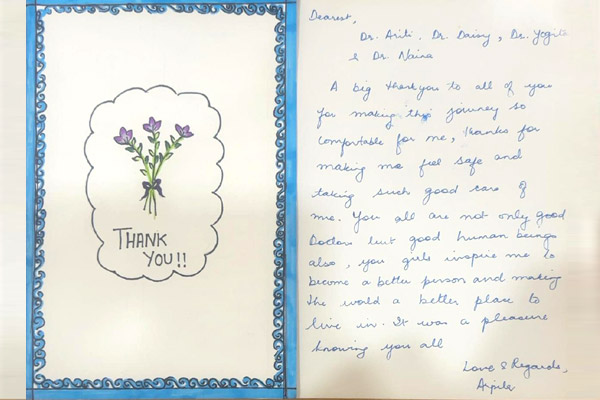 THANK
YOU!!
Dearest,
Dr. Daisy, Dr. Yogita
& Dr. Naina
A big thankyou to all of you
for making this journey so
comfortable for me, thanks for
making me feel safe and
taking such good care of
me. You all are not only good
Doctors but good human beings
also, you girls inspire me to
become a better person and making
the world a better place to
live in. It was a pleasure
knowing you all
Love & Regards,